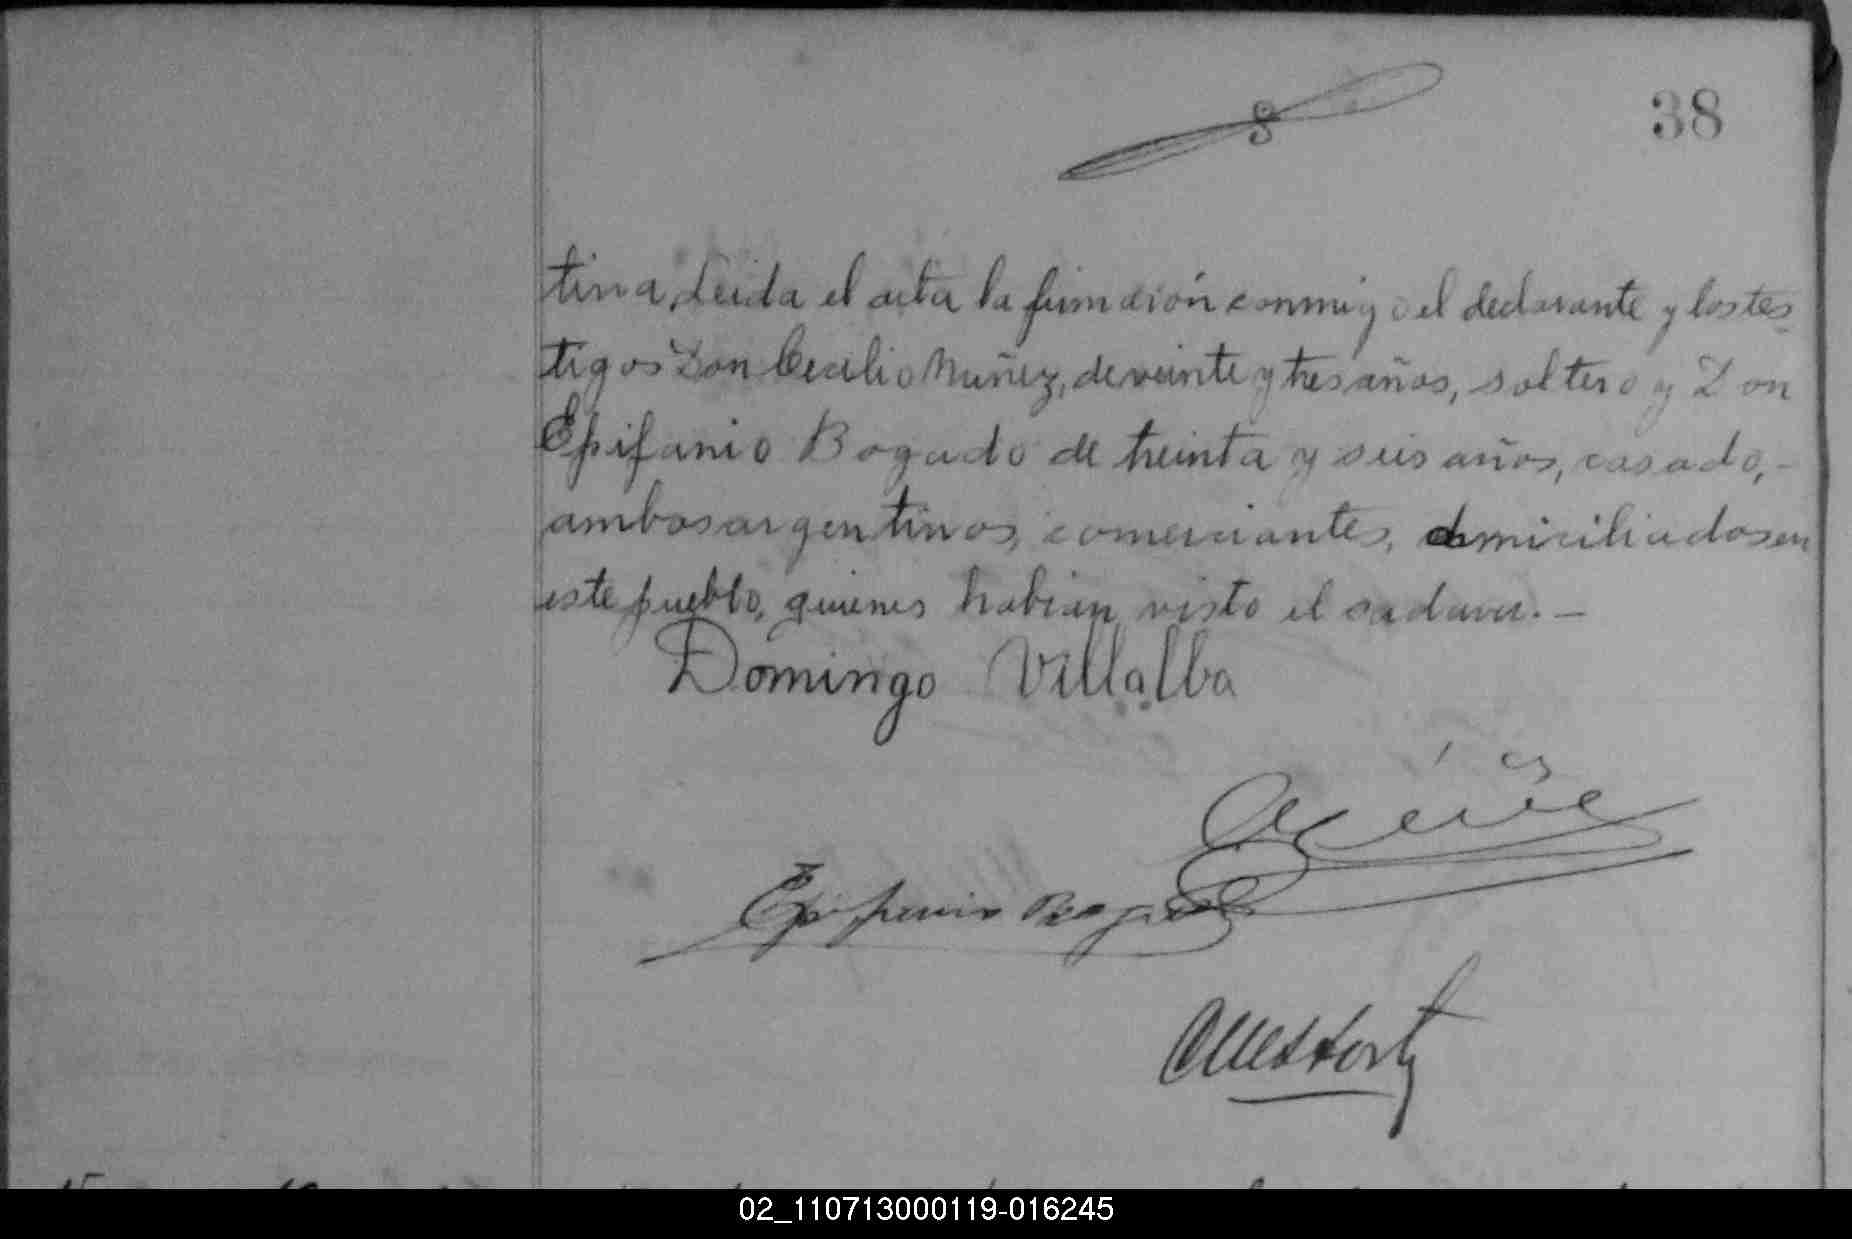 38
tina. Leida el acta la firmarón conmigo el declarante y los tes-
tigos Don Cecilio Nuñez, de veinte y tres años, soltero y Don
Epifanio Bogado de treinta y seis años, casado,-
ambos argentinos, comerciantes, domiciliados en
este pueblo, quienes habian visto el cadaver.-
Domingo Villalba
Epifanio Bogado
02_110713000119-016245